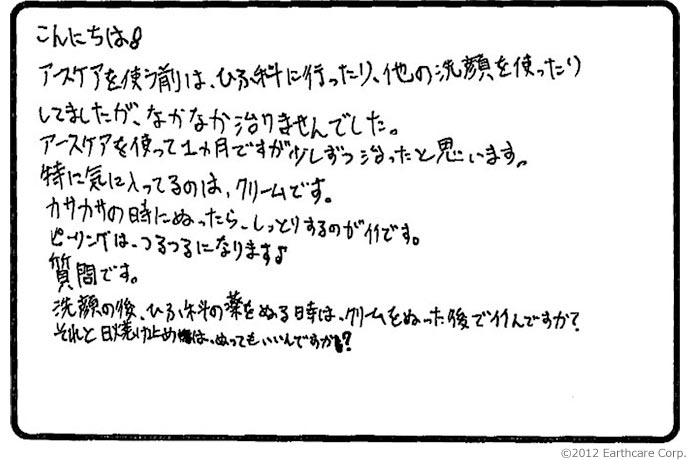 こんにちは!
アースケアを使う前は、ひふ科に行ったり、他の洗顔を使ったり
してましたが、なかなか治りませんでした。
アースケアを使って1ヵ月ですが少しずつ治ったと思います。
特に気に入ってるのは、クリームです。
カサカサの時にぬったら、しっとりするのがイイです。
ピーリングは、つるつるになります♪
質問です。
洗顔の後、ひふ科の薬をぬる時は、クリームをぬった後でイイんですか?
それと日焼け止めは、ぬってもいいんですか?
©2012 Earthcare Corp.